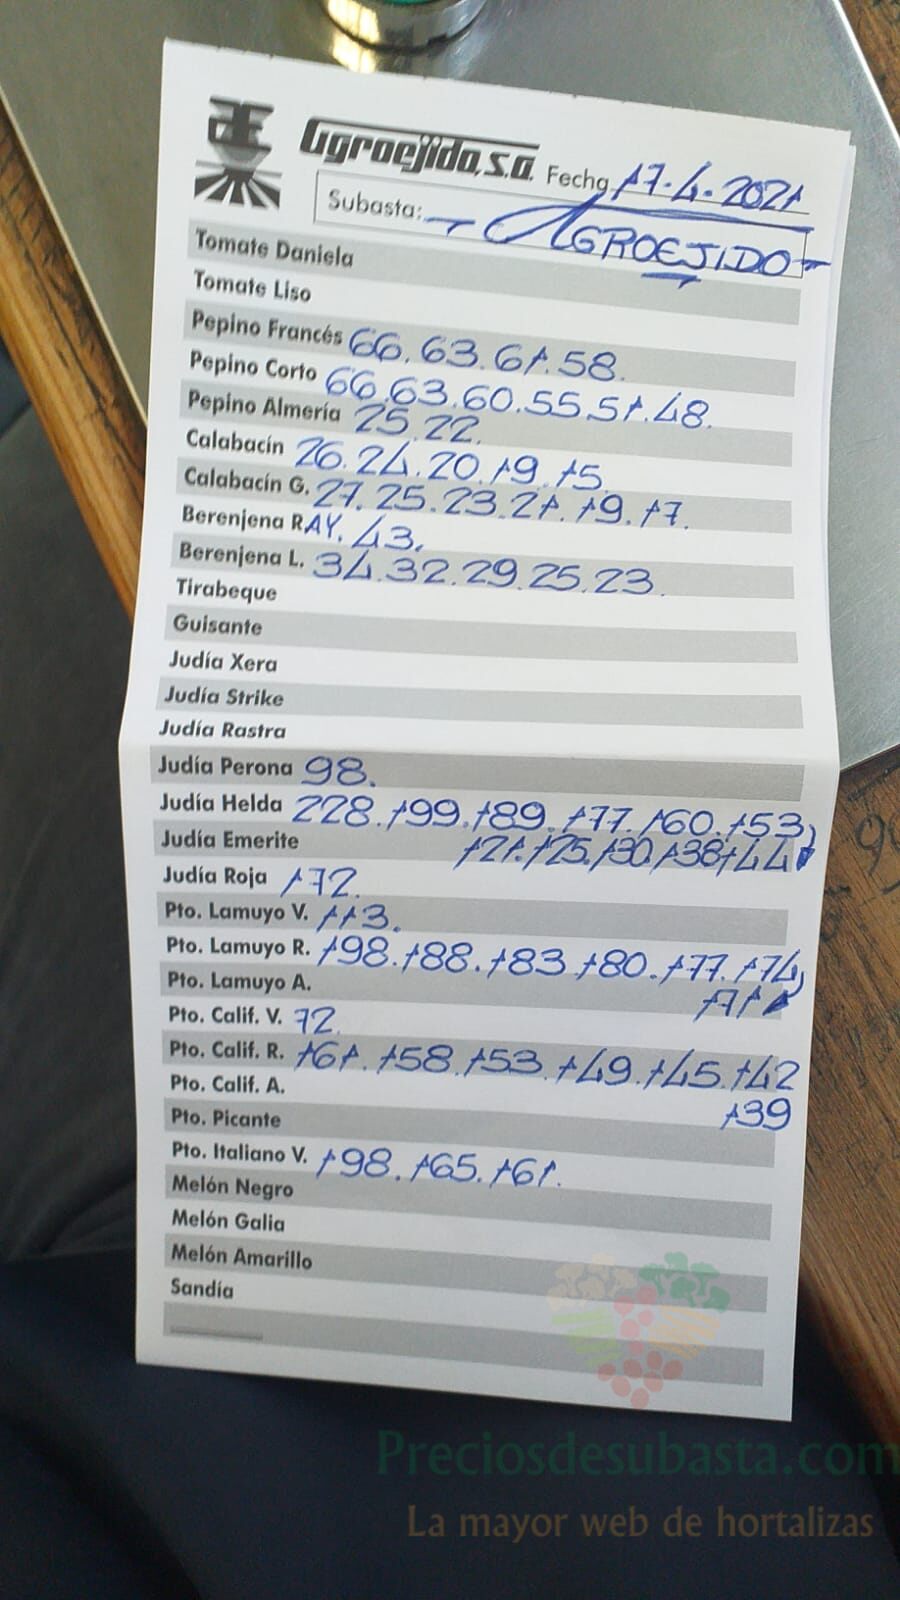 Agroejido, S.A. Fecha 17-4-2021
Subasta: - AGROEJIDO -
Tomate Daniela
Tomate Liso
Pepino Francés 66. 63. 61. 58.
Pepino Corto 66. 63. 60. 55. 51. 48.
Pepino Almería 25. 22.
Calabacín 26. 24. 20. 19. 15.
Calabacín G. 27. 25. 23. 21. 19. 17.
Berenjena RAY. 43.
Berenjena L. 34. 32. 29. 25. 23.
Tirabeque
Guisante
Judía Xera
Judía Strike
Judía Rastra
Judía Perona 98.
Judía Helda 228. 199. 189. 177. 160. 153
Judía Emerite 121. 125. 130. 138. 144
Judía Roja 172.
Pto. Lamuyo V. 113.
Pto. Lamuyo R. 198. 188. 183 180. 177. 174
Pto. Lamuyo A. 171
Pto. Calif. V. 72.
Pto. Calif. R. 161. 158. 153. 149. 145. 142
Pto. Calif. A. 139
Pto. Picante
Pto. Italiano V. 198. 165. 161.
Melón Negro
Melón Galia
Melón Amarillo
Sandía
Preciosdesubasta.com
La mayor web de hortalizas